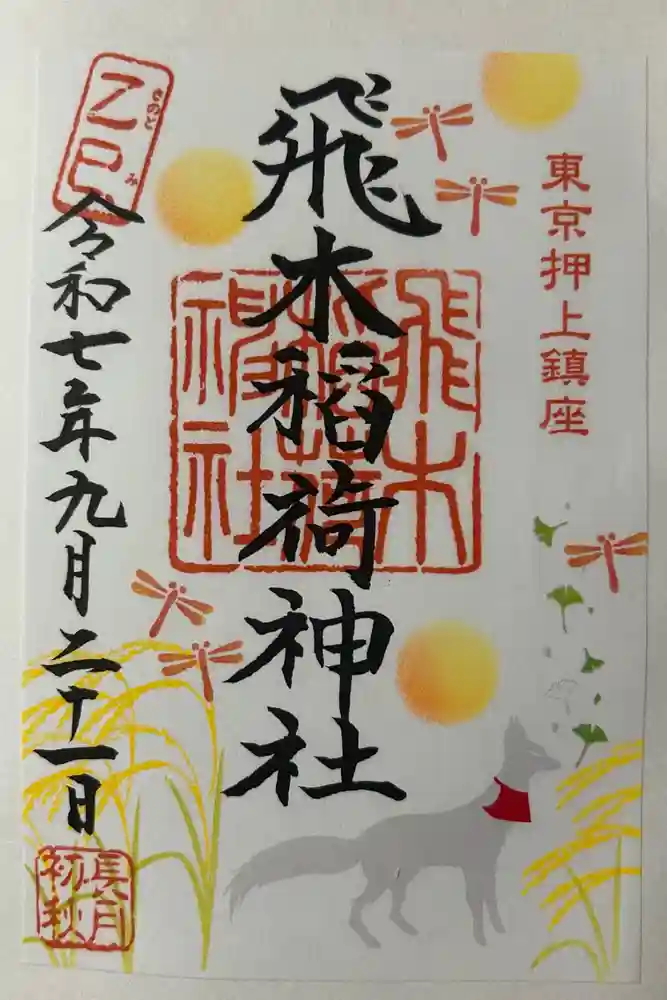 東京押上鎮座
飛木稲荷神社
飛木稲荷神社
乙巳
きのと
み
令和七年九月二十一日
長月
初秋